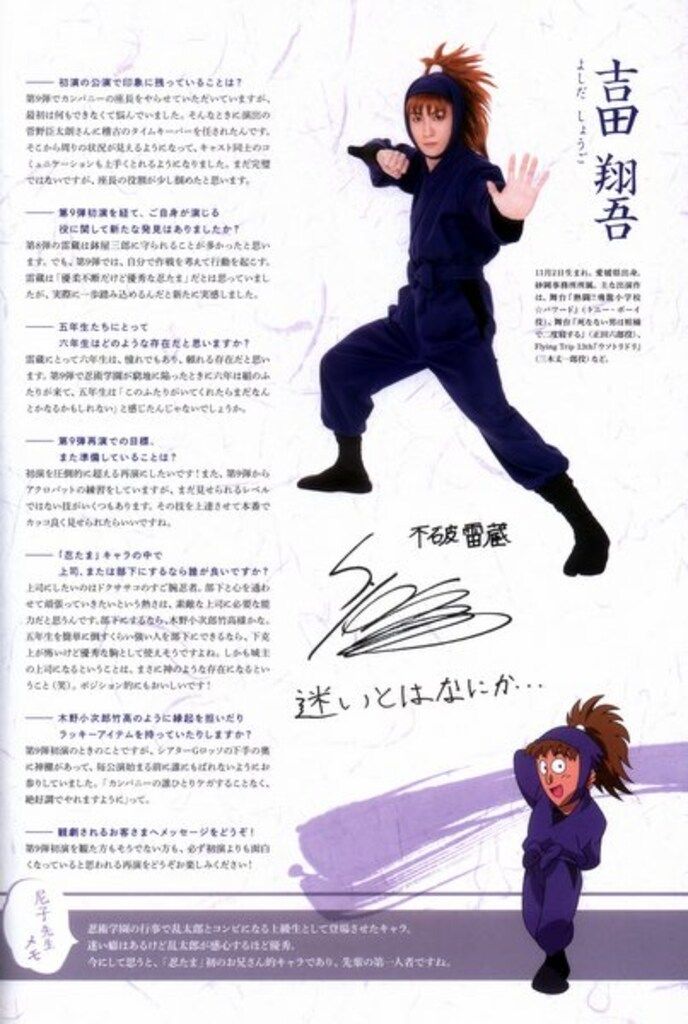 吉田 翔吾
よしだ しょうご
11月2日生まれ。愛媛県出身。
砂岡事務所所属。主な出演作
は、舞台『熱闘!!飛龍小学校
☆パワード』(トニー・ボーイ
役)、舞台『死なない男は棺桶
で二度寝する』(正田六郎役)、
Flying Trip 13th『ウソトリドリ』
(三木丈一郎役)など。
―― 初演の公演で印象に残っていることは?
第9弾でカンパニーの座長をやらせていただいていますが、
最初は何もできなくて悩んでいました。そんなときに演出の
菅野臣太朗さんに稽古のタイムキーパーを任されたんです。
そこから周りの状況が見えるようになって、キャスト同士のコ
ミュニケーションも上手くとれるようになりました。まだ完璧
ではないですが、座長の役割が少し掴めたと思います。
―― 第9弾初演を経て、ご自身が演じる
役に関して新たな発見はありましたか?
第8弾の雷蔵は鉢屋三郎に守られることが多かったと思い
ます。でも、第9弾では、自分で作戦を考えて行動を起こす。
雷蔵は「優柔不断だけど優秀な忍たま」だとは思っていまし
たが、実際に一歩踏み込めるんだと新たに実感しました。
―― 五年生たちにとって
六年生はどのような存在だと思いますか?
雷蔵にとって六年生は、憧れでもあり、頼れる存在だと思い
ます。第9弾で忍術学園が窮地に陥ったときに六年は組のふ
たりが来て、五年生は「このふたりがいてくれたらまだなん
とかなるかもしれない」と感じたんじゃないでしょうか。
―― 第9弾再演での目標、
また準備していることは?
初演を圧倒的に超える再演にしたいです!また、第9弾から
アクロバットの練習をしていますが、まだ見せられるレベル
ではない技がいくつもあります。その技を上達させて本番で
カッコ良く見せられたらいいですね。
―― 「忍たま」キャラの中で
上司、または部下にするなら誰が良いですか?
上司にしたいのはドクササコのすご腕忍者。部下と心を通わ
せて頑張っていきたいという熱さは、素敵な上司に必要な能
力だと思うんです。部下にするなら、木野小次郎竹高様かな。
五年生を簡単に倒すくらい強い人を部下にできるなら、下克
上が怖いけど優秀な駒として使えそうですよね。しかも城主
の上司になるということは、まさに神のような存在になるとい
うこと(笑)。ポジション的にもおいしいです!
―― 木野小次郎竹高のように縁起を担いだり
ラッキーアイテムを持っていたりしますか?
第9弾初演のときのことですが、シアターGロッソの下手の奥
に神棚があって、毎公演始まる前に誰にもばれないようにお
参りしていました。「カンパニーの誰ひとりケガすることなく、
絶好調でやれますように」って。
―― 観劇されるお客さまへメッセージをどうぞ!
第9弾初演を観た方もそうでない方も、必ず初演よりも面白
くなっていると思われる再演をどうぞお楽しみください!
不破雷蔵
迷いとはなにか…
尼子先生
メモ
忍術学園の行事で乱太郎とコンビになる上級生として登場させたキャラ。
迷い癖はあるけど乱太郎が感心するほど優秀。
今にして思うと、「忍たま」初のお兄さん的キャラであり、先輩の第一人者ですね。